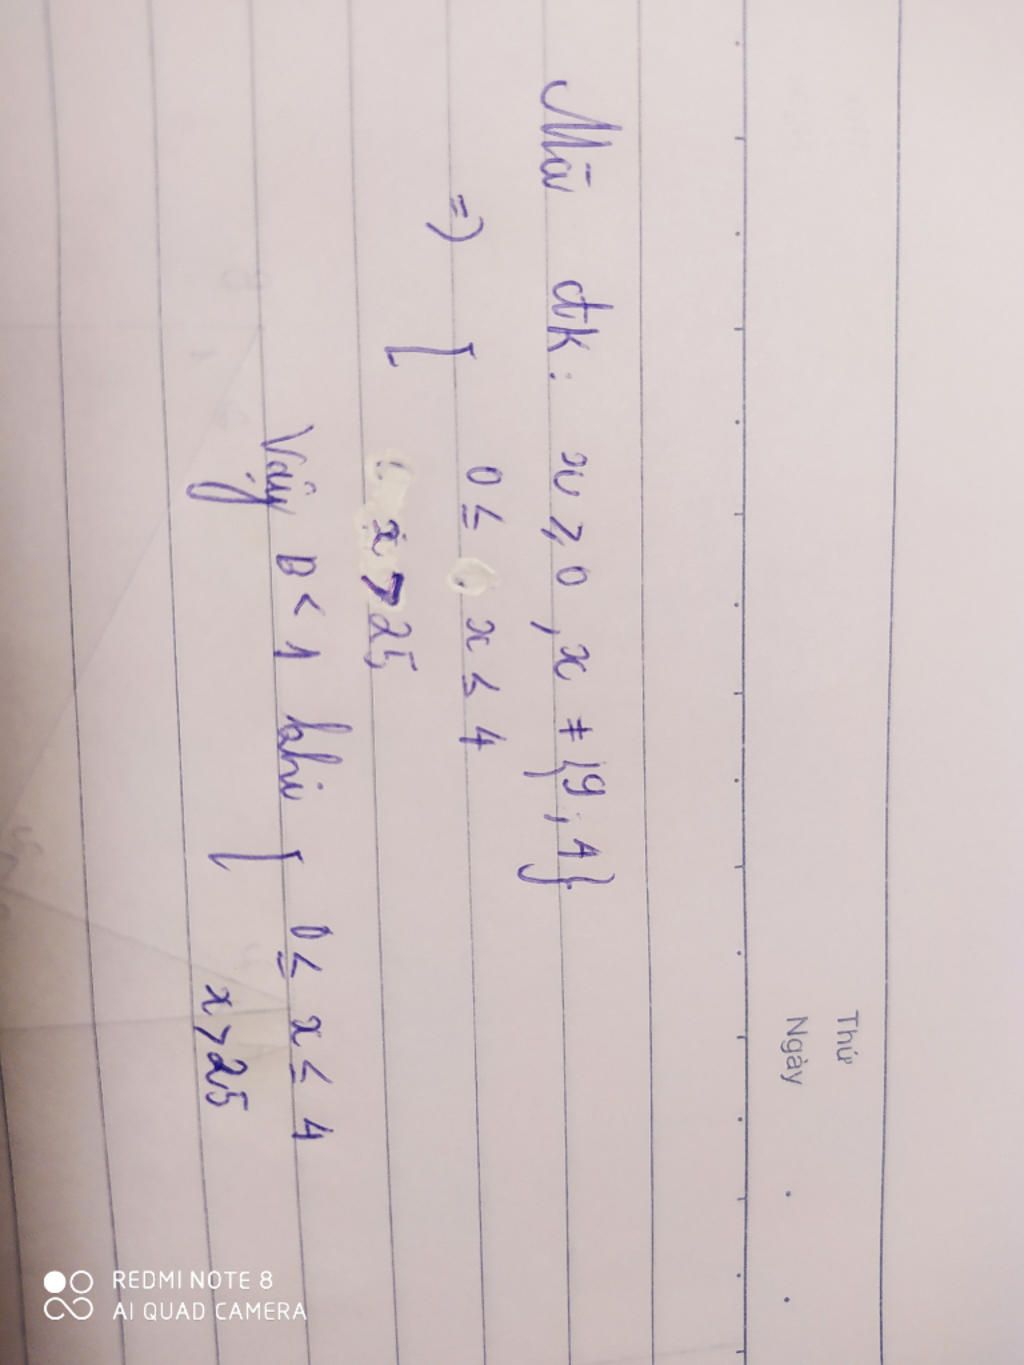 Thứ
Ngày
Mà đk: x ≥ 0, x ≠ {9; 4}
=> [ 0 ≤ x ≤ 4
x > 25
Vậy B < 1 khi [ 0 ≤ x ≤ 4
x > 25
REDMI NOTE 8
AI QUAD CAMERA